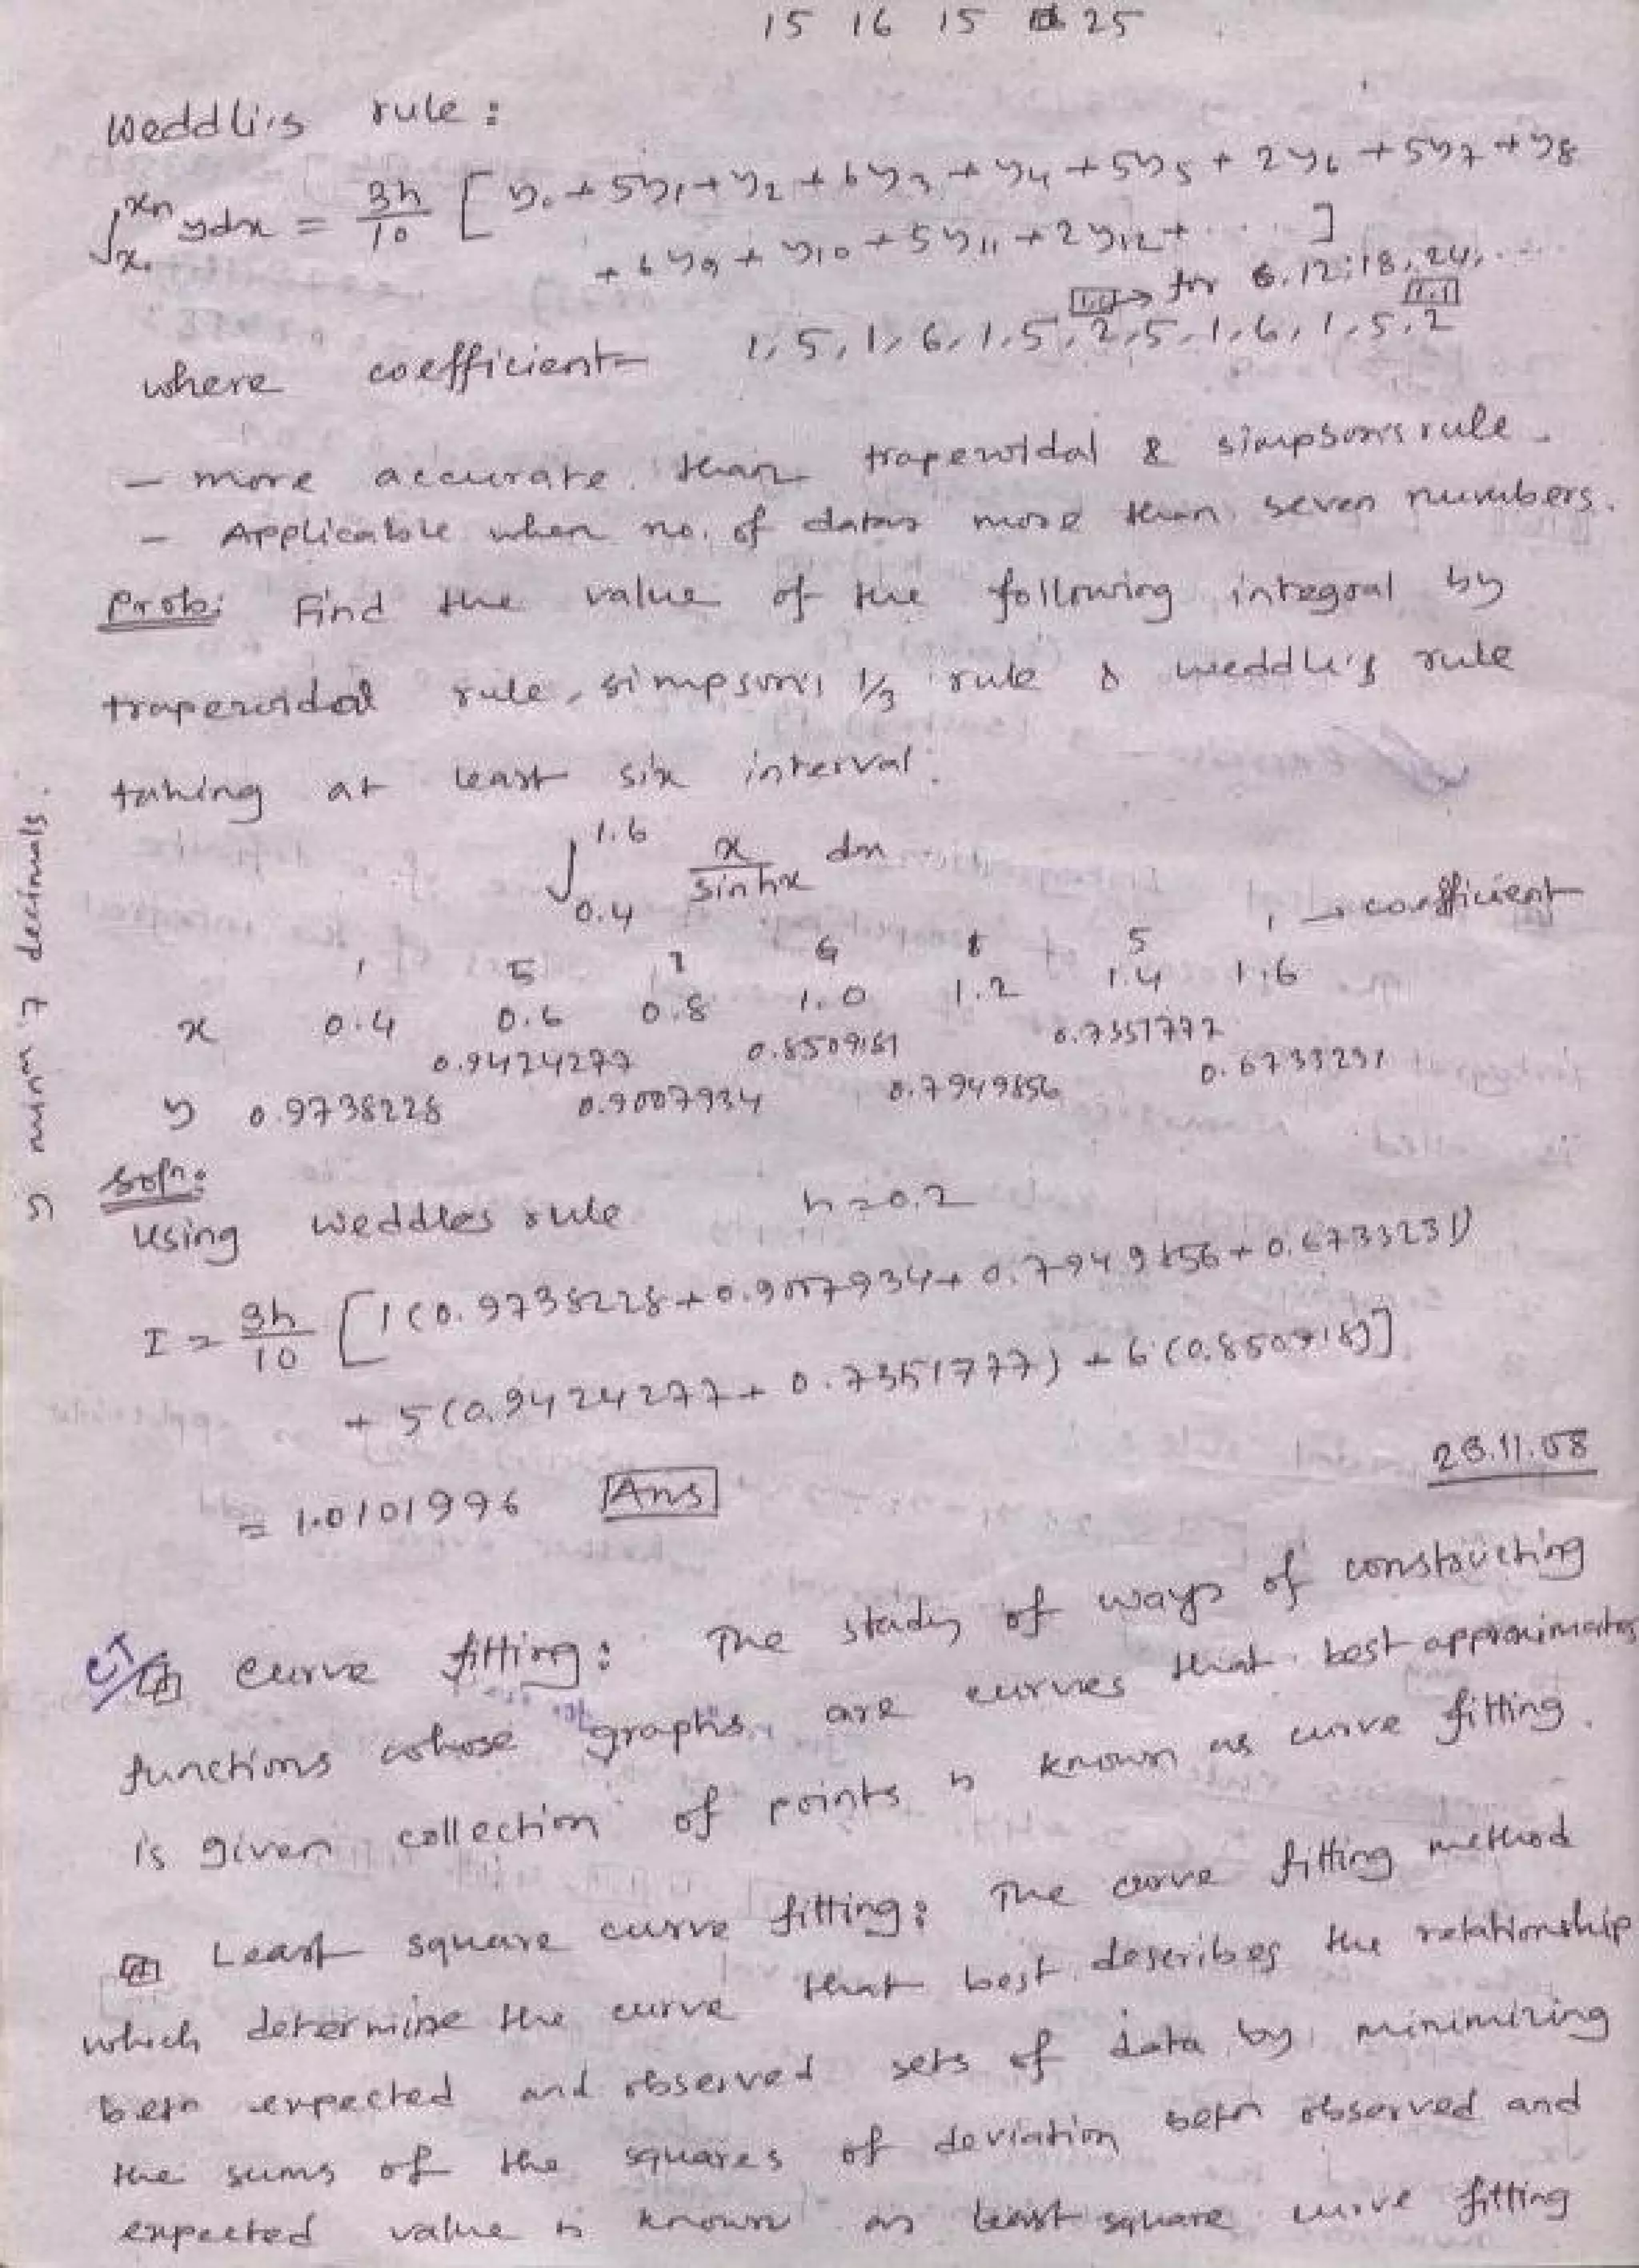 15 16 15 25
Weddli's rule :
∫x₀^xn ydx = 3h/10 [ y₀ + 5y₁ + y₂ + 6y₃ + y₄ + 5y₅ + 2y₆ + 5y₇ + y₈
+ 6y₉ + y₁₀ + 5y₁₁ + 2y₁₂ + .... ]
→ for 6, 12, 18, 24, ...
where coefficient 1, 5, 1, 6, 1, 5, 2, 5, 1, 6, 1, 5, 2
- more accurate than trapezoidal & simpson's rule.
- Applicable when no. of datas more than seven numbers.
Prob: Find the value of the following integral by
trapezoidal rule, simpson's 1/3 rule & weddle's rule
taking at least six interval.
∫0.4^1.6 x/sinhx dx
1 5 1 6 1 5 1 → coefficient
x 0.4 0.6 0.8 1.0 1.2 1.4 1.6
0.9424277 0.8509181 0.7351777
y 0.9738228 0.9007934 0.7949856 0.6733231
minm 7 decimals.
Soln:
Using weddles rule h=0.2
I = 3h/10 [1(0.9738228+0.9007934+0.7949856+0.6733231)
+ 5(0.9424277+0.7351777) + 6(0.8509181)]
= 1.0101996 Ans
23.11.08
CT Curve fitting: The study of ways of constructing
functions whose graphs are curves that best approximates
is given collection of points is known as curve fitting.
Least square curve fitting: The curve fitting method
which determine the curve that best describes the relationship
betn expected and observed sets of data by minimizing
the sums of the squares of deviation betn observed and
expected value is known as least square curve fitting